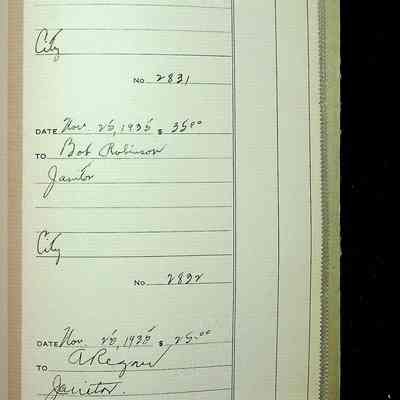 City
No 2831
DATE Nov. 25, 1935 $ 35.00
TO Bob Robinson
Janitor
City
No 2832
DATE Nov. 25, 1935 $ 25.00
TO A Regner
Janitor.